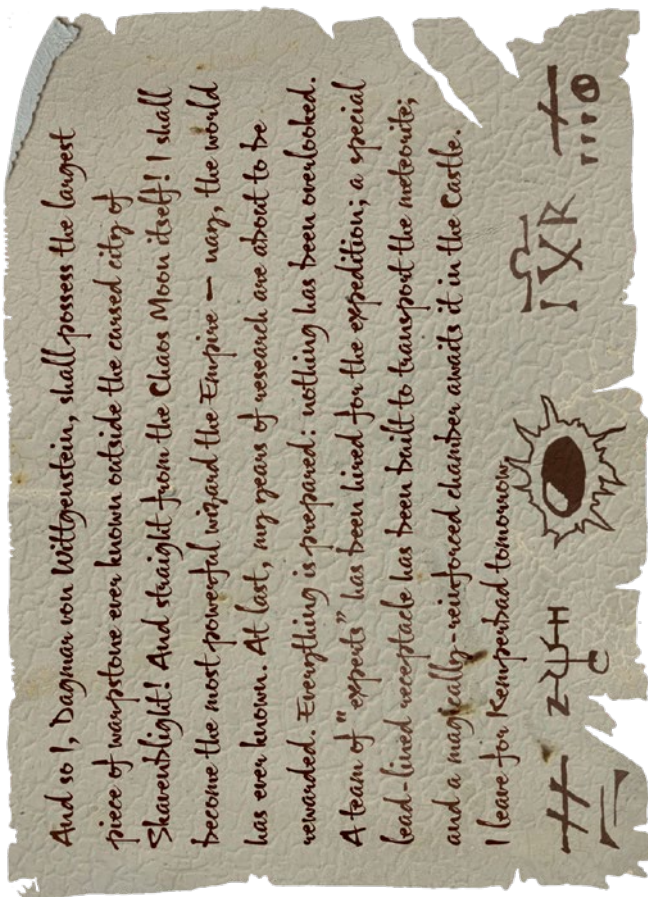 And so I, Dagmar von Wittgenstein, shall possess the largest
piece of warpstone ever known outside the cursed city of
Skavenblight! And straight from the Chaos Moon itself! I shall
become the most powerful wizard the Empire – nay, the world
has ever known. At last, my years of research are about to be
rewarded. Everything is prepared: nothing has been overlooked.
A team of "experts" has been hired for the expedition; a special
lead-lined receptacle has been built to transport the meteorite;
and a magically-reinforced chamber awaits it in the Castle.
I leave for Kemperbad tomorrow.